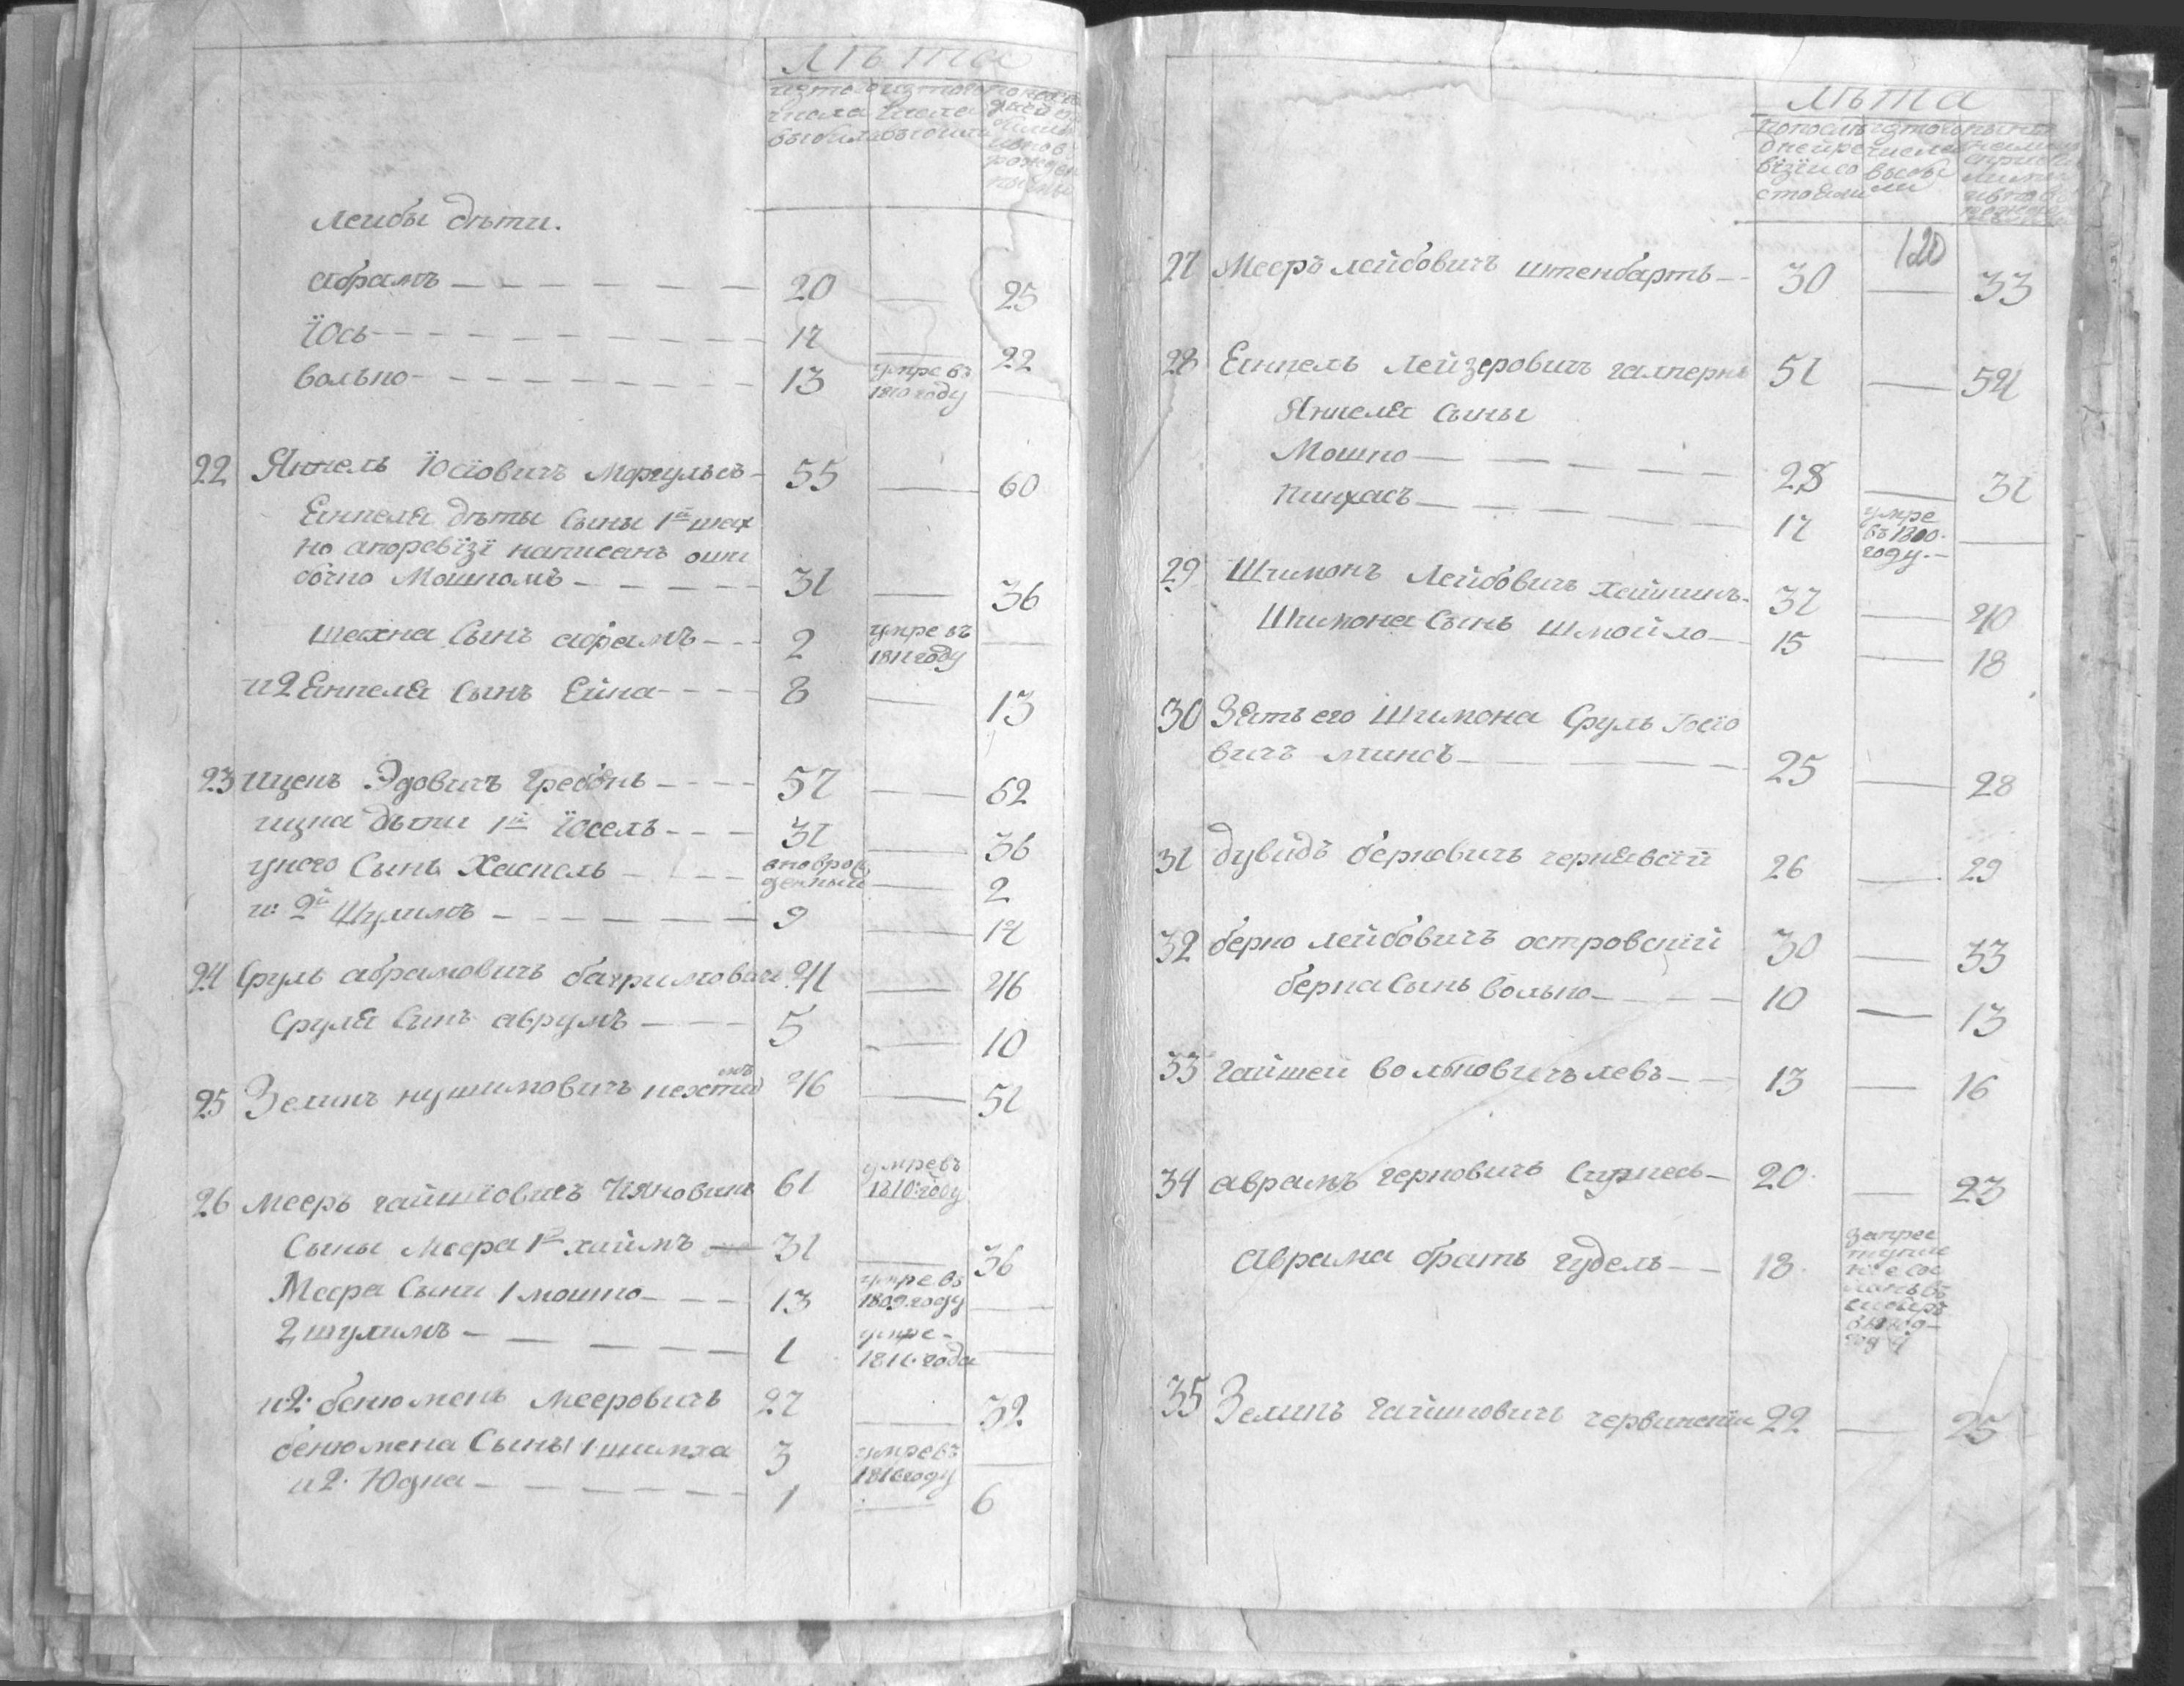 лѣта
изтого числа выбыло
изтого числа выбыли
лейбы дѣти.
абрамъ — 20 — 25
Їось — 17 — 22
волько — 13 умре въ 1810 году —
22 Янкель Їосїовичъ Моргульсъ — 55 — 60
Еинкеля дѣты сыны 1й шах
но апоревїзї написанъ оши
бочно Мошкомъ — 31 — 36
шахна сынъ абрамъ — 2 умре въ 1811 году —
и 2 Еинкеля сынъ Ейна — 8 — 13
23 ицекъ Эдовичъ Гребень — 57 — 62
ицка дѣти 1й Їосель — 31 — 36
унего сынъ Хаскель — вновророжденный — 2
и: 2й Шулимъ — 9 — 14
24 Сруль абрамовичъ багримович 41 — 46
Сруля сынъ аврумъ — 5 — 10
25 Зеликъ нушимовичъ 46 — 51
26 Мееръ гайшїовичъ 61 умре въ 1810: году
Сыны Меера 1й хаимъ — 31 — 36
Меера Сыни 1 мошко — 13 умре въ 1809 году —
2 шулимъ — 1 умре - 1811. года —
и 2. бенюменъ мееровичъ 27 — 32
бенюмена Сыны 1 шимха 3 умре въ 1810 году —
и 2. Юдка — 1 — 6
лѣта
попослѣдней ревїзїи состояли
изтого числа выбыли
120
27 Мееръ лейбовичъ штенбартъ — 30 — 33
28 Еинкель лейзеровичъ галпернъ 51 — 54
Янкеля Сыны
Мошко — 28 — 31
Пинхасъ — 17 умре въ 1800. году. —
29 Шимонъ Лейбовичъ хаймикъ — 37 — 40
Шимона Сынъ шмойло — 15 — 18
30 Зять его Шимона Сруль Іосїо
вичъ минсъ — 25 — 28
31 дувидъ берковичъ чернявскїй 26 — 29
32 берко лейбовичъ островскїй 30 — 33
берка Сынъ волько — 10 — 13
33 гайшей вольковичъ левъ — 13 — 16
34 аврамъ герковичъ — 20 — 23
Аврама братъ гудель — 18 запреступленіе сосланъ въ сибирь
году
35 Зеликъ гайшиовичъ червинскїй 22 — 25